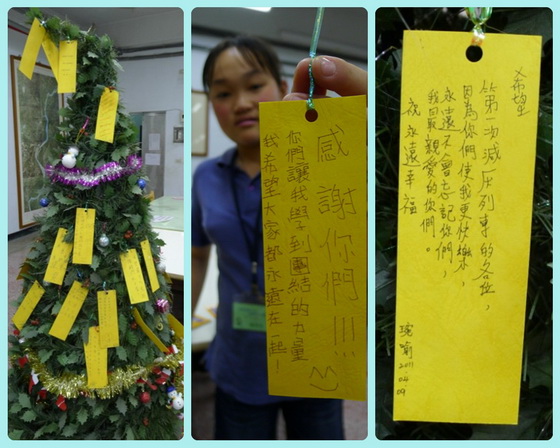 感謝你們!!!
你們讓我學到團結的力量
我希望大家都永遠在一起!
希望
第一次減灰列車的各位,
因為你們使我更快樂,
永遠不會忘記你們,
我最親愛的你們。
祝永遠幸福
琬喻
2011
04
09